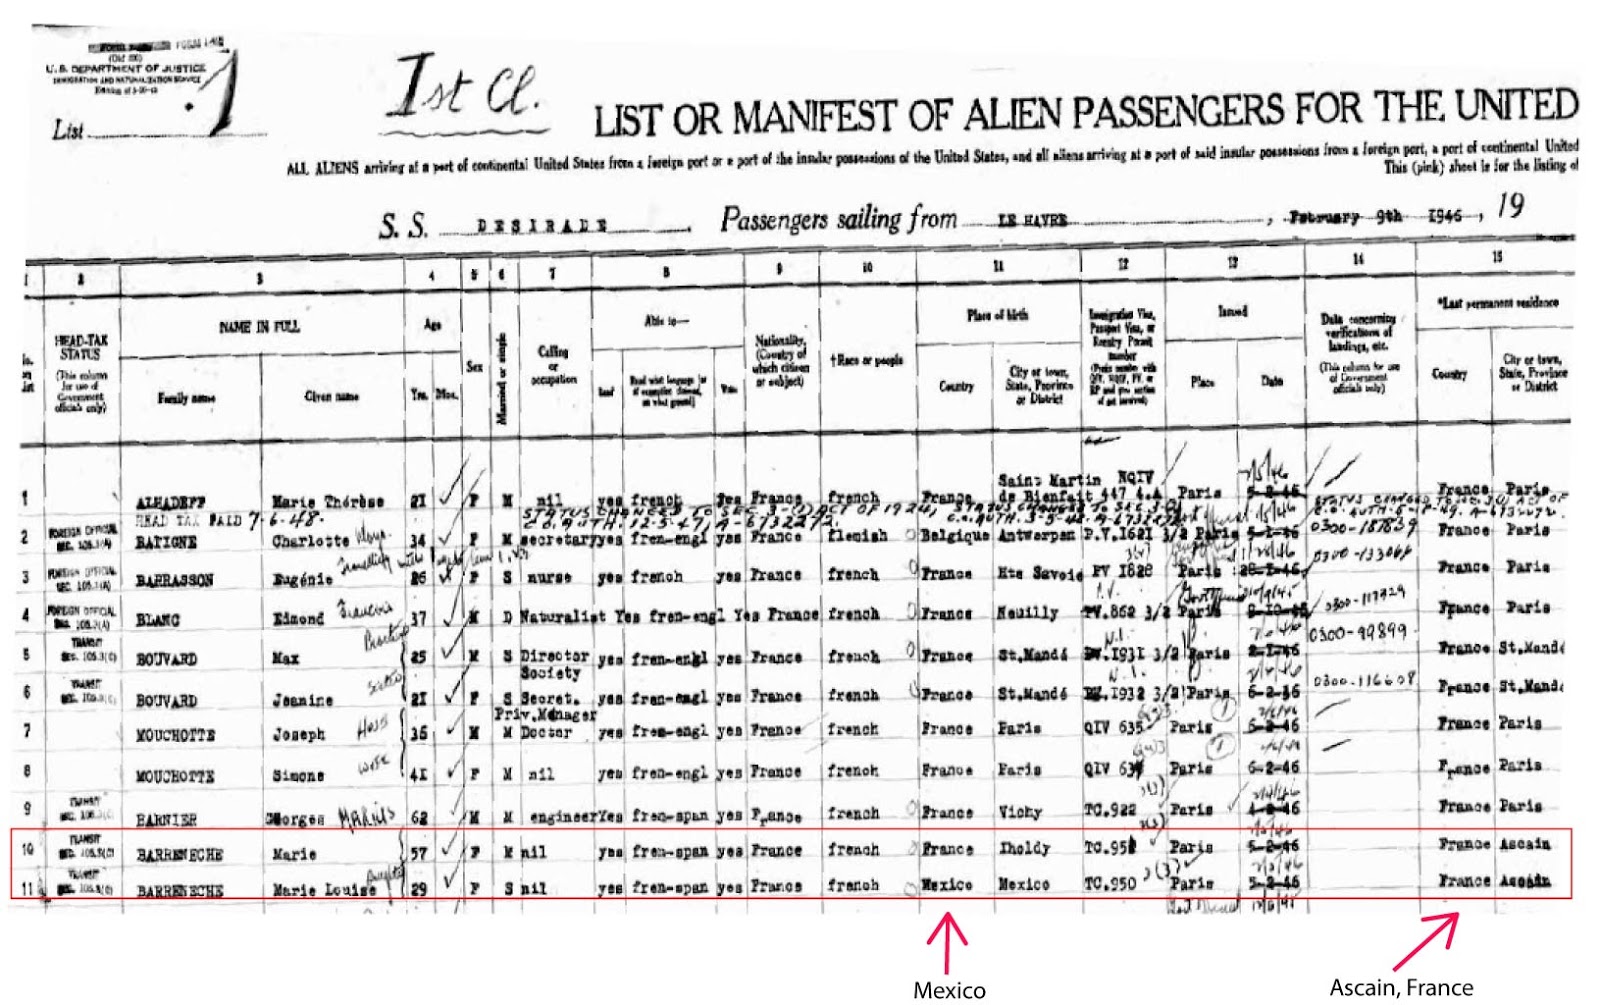 FORM I-415
(Old 500)
U. S. DEPARTMENT OF JUSTICE
IMMIGRATION AND NATURALIZATION SERVICE
List 1
Ist Cl.
LIST OR MANIFEST OF ALIEN PASSENGERS FOR THE UNITED
ALL ALIENS arriving at a port of continental United States from a foreign port or a port of the insular possessions of the United States, and all aliens arriving at a port of said insular possessions from a foreign port, a port of continental United
This (pink) sheet is for the listing of
S. S. DESIRADE Passengers sailing from LE HAVRE, February 9th 1946, 19
1 2 3 4 5 6 7 8 9 10 11 12 13 14 15
HEAD-TAX STATUS (This column for use of Government officials only)
NAME IN FULL
Family name Given name
Age
Yrs. Mos.
Sex
Married or single
Calling or occupation
Able to—
Read Read what language [or if exemption claimed, on what ground] Write
Nationality. (Country of which citizen or subject)
†Race or people
Place of birth
Country City or town, State, Province or District
Immigration Visa, Passport Visa, or Reentry Permit number
Issued
Place Date
Data concerning verifications of landings, etc. (This column for use of Government officials only)
*Last permanent residence
Country City or town, State, Province or District
1 ALHADEFF Marie Thérèse 21 F M nil yes french Yes France french France Saint Martin de Bienfait NQIV 447 4.A Paris 5-2-46 France Paris
HEAD TAX PAID 7-6-48. STATUS CHANGED TO SEC. 3-( ) ACT OF 1924, C.O. AUTH. 12-5-47, A-6732272.
2 FOREIGN OFFICIAL BATIGNE Charlotte 34 F M secretary yes fren-engl yes France flemish Belgique Antwerpen P.V.1621 3/2 Paris 0300-187839 France Paris
3 FOREIGN OFFICIAL BARRASSON Eugénie 26 F S nurse yes french yes France french France Hte Savoie PV 1828 Paris 28-1-46 0300-133068 France Paris
4 FOREIGN OFFICIAL BLANC Edmond Francois 37 M D Naturalist Yes fren-engl Yes France french France Neuilly PV.862 3/2 Paris 0300-117929 France Paris
5 TRANSIT BOUVARD Max Brother 25 M S Director Society yes fren-engl yes France french France St.Mandé PV.1931 3/2 Paris 0300-99899 France St.Mandé
6 TRANSIT BOUVARD Jeanine Sister 21 F S Secret. Priv.Manager yes fren-engl yes France french France St.Mandé PV.1932 3/2 Paris 6-2-46 0300-116608 France St.Mandé
7 MOUCHOTTE Joseph Husb 36 M M Doctor yes fren-engl yes France french France Paris QIV 635 Paris 6-2-46 France Paris
8 MOUCHOTTE Simone wife 41 F M nil yes fren-engl yes France french France Paris QIV 634 Paris 6-2-46 France Paris
9 TRANSIT BARNIER Georges MARIUS 62 M M engineer Yes fren-span yes France french France Vichy TC.922 Paris 4-2-46 France Paris
10 TRANSIT BARRENECHE Marie 57 F M nil yes fren-span yes France french France Iholdy TC.951 Paris 5-2-46 France Ascain
11 TRANSIT BARRENECHE Marie Louise daughter 29 F S nil yes fren-span yes France french Mexico Mexico TC.950 Paris 5-2-46 France Ascain
Mexico
Ascain, France